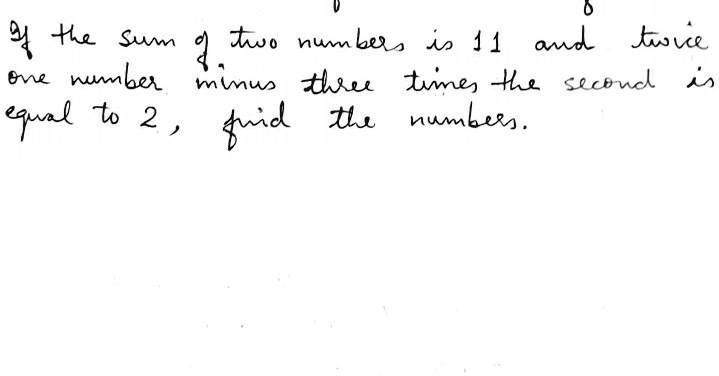 If the sum of two numbers is 11 and twice
one number minus three times the second is
equal to 2, find the numbers.